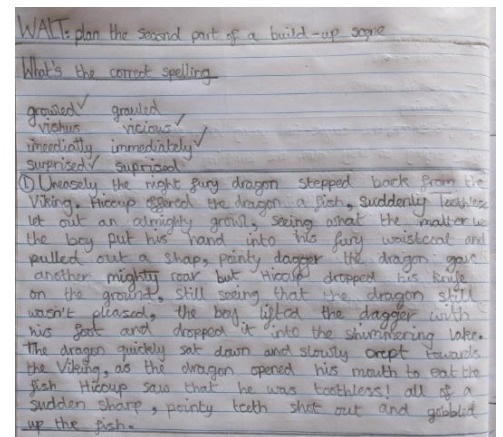 WALT: plan the second part of a build-up scene
What's the correct spelling
growled ✓ grauled
vishus vicious ✓
imeediatly immediately ✓
surprised ✓ suprised
① Uneasely the night fury dragon stepped back from the
Viking. Hiccup offered the dragon a fish, suddenly Toothless
let out an almighty growl, seing what the matter was
the boy put his hand into his fury waistcoat and
pulled out a shap, pointy dagger the dragon gave
another mighty roar but Hiccup dropped his knife
on the ground, still seeing that the dragon still
wasn't pleased, the boy lifted the dagger with
his foot and dropped it into the shimmering lake.
The dragon quickly sat down and slowly crept towards
the Viking, as the dragon opened his mouth to eat the
fish Hiccup saw that he was toothless! all of a
sudden sharp, pointy teeth shot out and gobbled
up the fish.